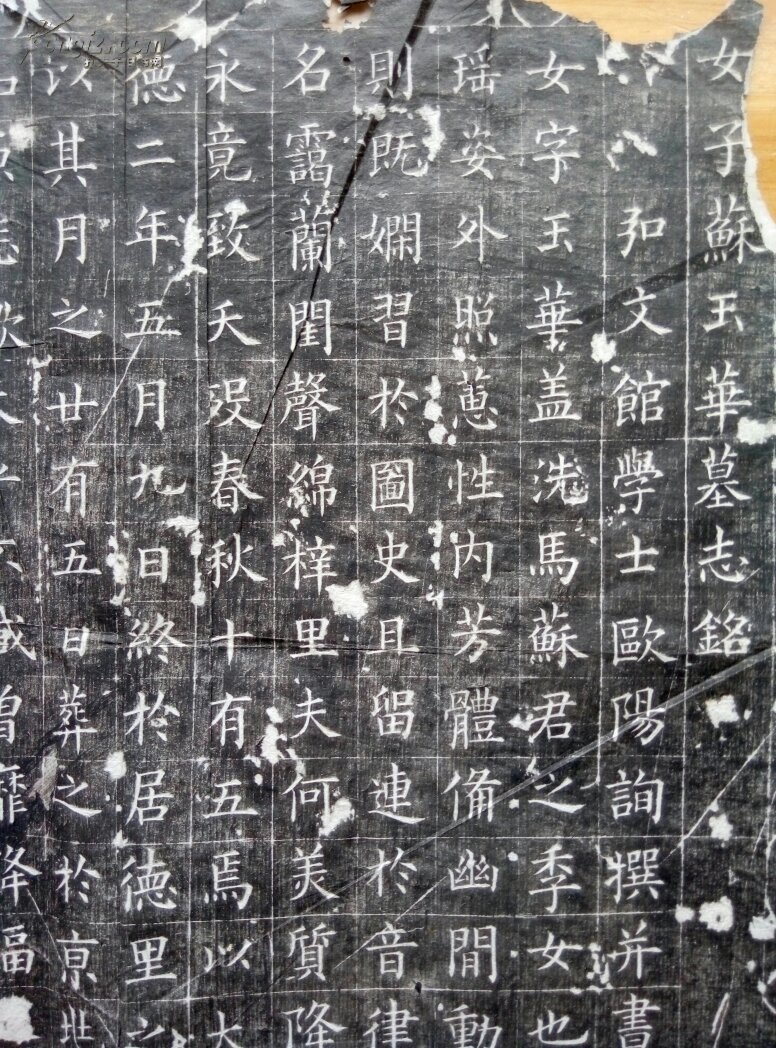 女子蘇玉華墓志銘
弘文館學士歐陽詢撰并書
女字玉華盖洗馬蘇君之季女也
瑶姿外照蕙性内芳體俻幽閒動
則既嫻習於圖史且留連於音律
名靄蘭閨聲綿梓里夫何美質降
永竟致夭殁春秋十有五焉以大
德二年五月九日終於居德里之
以其月之廿有五日葬之於京